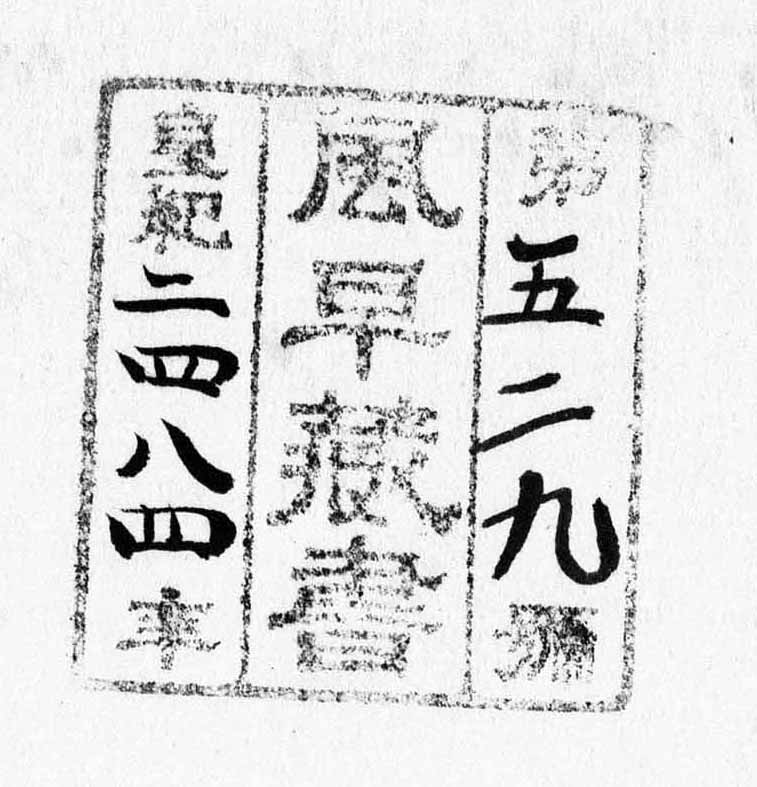 第五二九號
風早蔵書
皇紀二四八四年